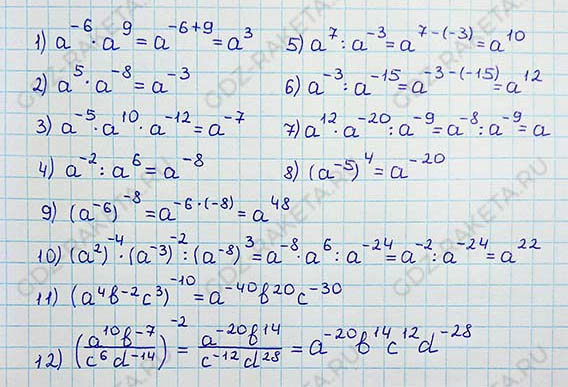 1) a⁻⁶ · a⁹ = a⁻⁶⁺⁹ = a³
2) a⁵ · a⁻⁸ = a⁻³
3) a⁻⁵ · a¹⁰ · a⁻¹² = a⁻⁷
4) a⁻² : a⁶ = a⁻⁸
5) a⁷ : a⁻³ = a⁷⁻⁽⁻³⁾ = a¹⁰
6) a⁻³ : a⁻¹⁵ = a⁻³⁻⁽⁻¹⁵⁾ = a¹²
7) a¹² · a⁻²⁰ : a⁻⁹ = a⁻⁸ : a⁻⁹ = a
8) (a⁻⁵)⁴ = a⁻²⁰
9) (a⁻⁶)⁻⁸ = a^(-6·(-8)) = a⁴⁸
10) (a²)⁻⁴ · (a⁻³)⁻² : (a⁻⁸)³ = a⁻⁸ · a⁶ : a⁻²⁴ = a⁻² : a⁻²⁴ = a²²
11) (a⁴b⁻²c³)⁻¹⁰ = a⁻⁴⁰b²⁰c⁻³⁰
12) (a¹⁰b⁻⁷/c⁶d⁻¹⁴)⁻² = a⁻²⁰b¹⁴/c⁻¹²d²⁸ = a⁻²⁰b¹⁴c¹²d⁻²⁸
GDZ-RAKETA.RU